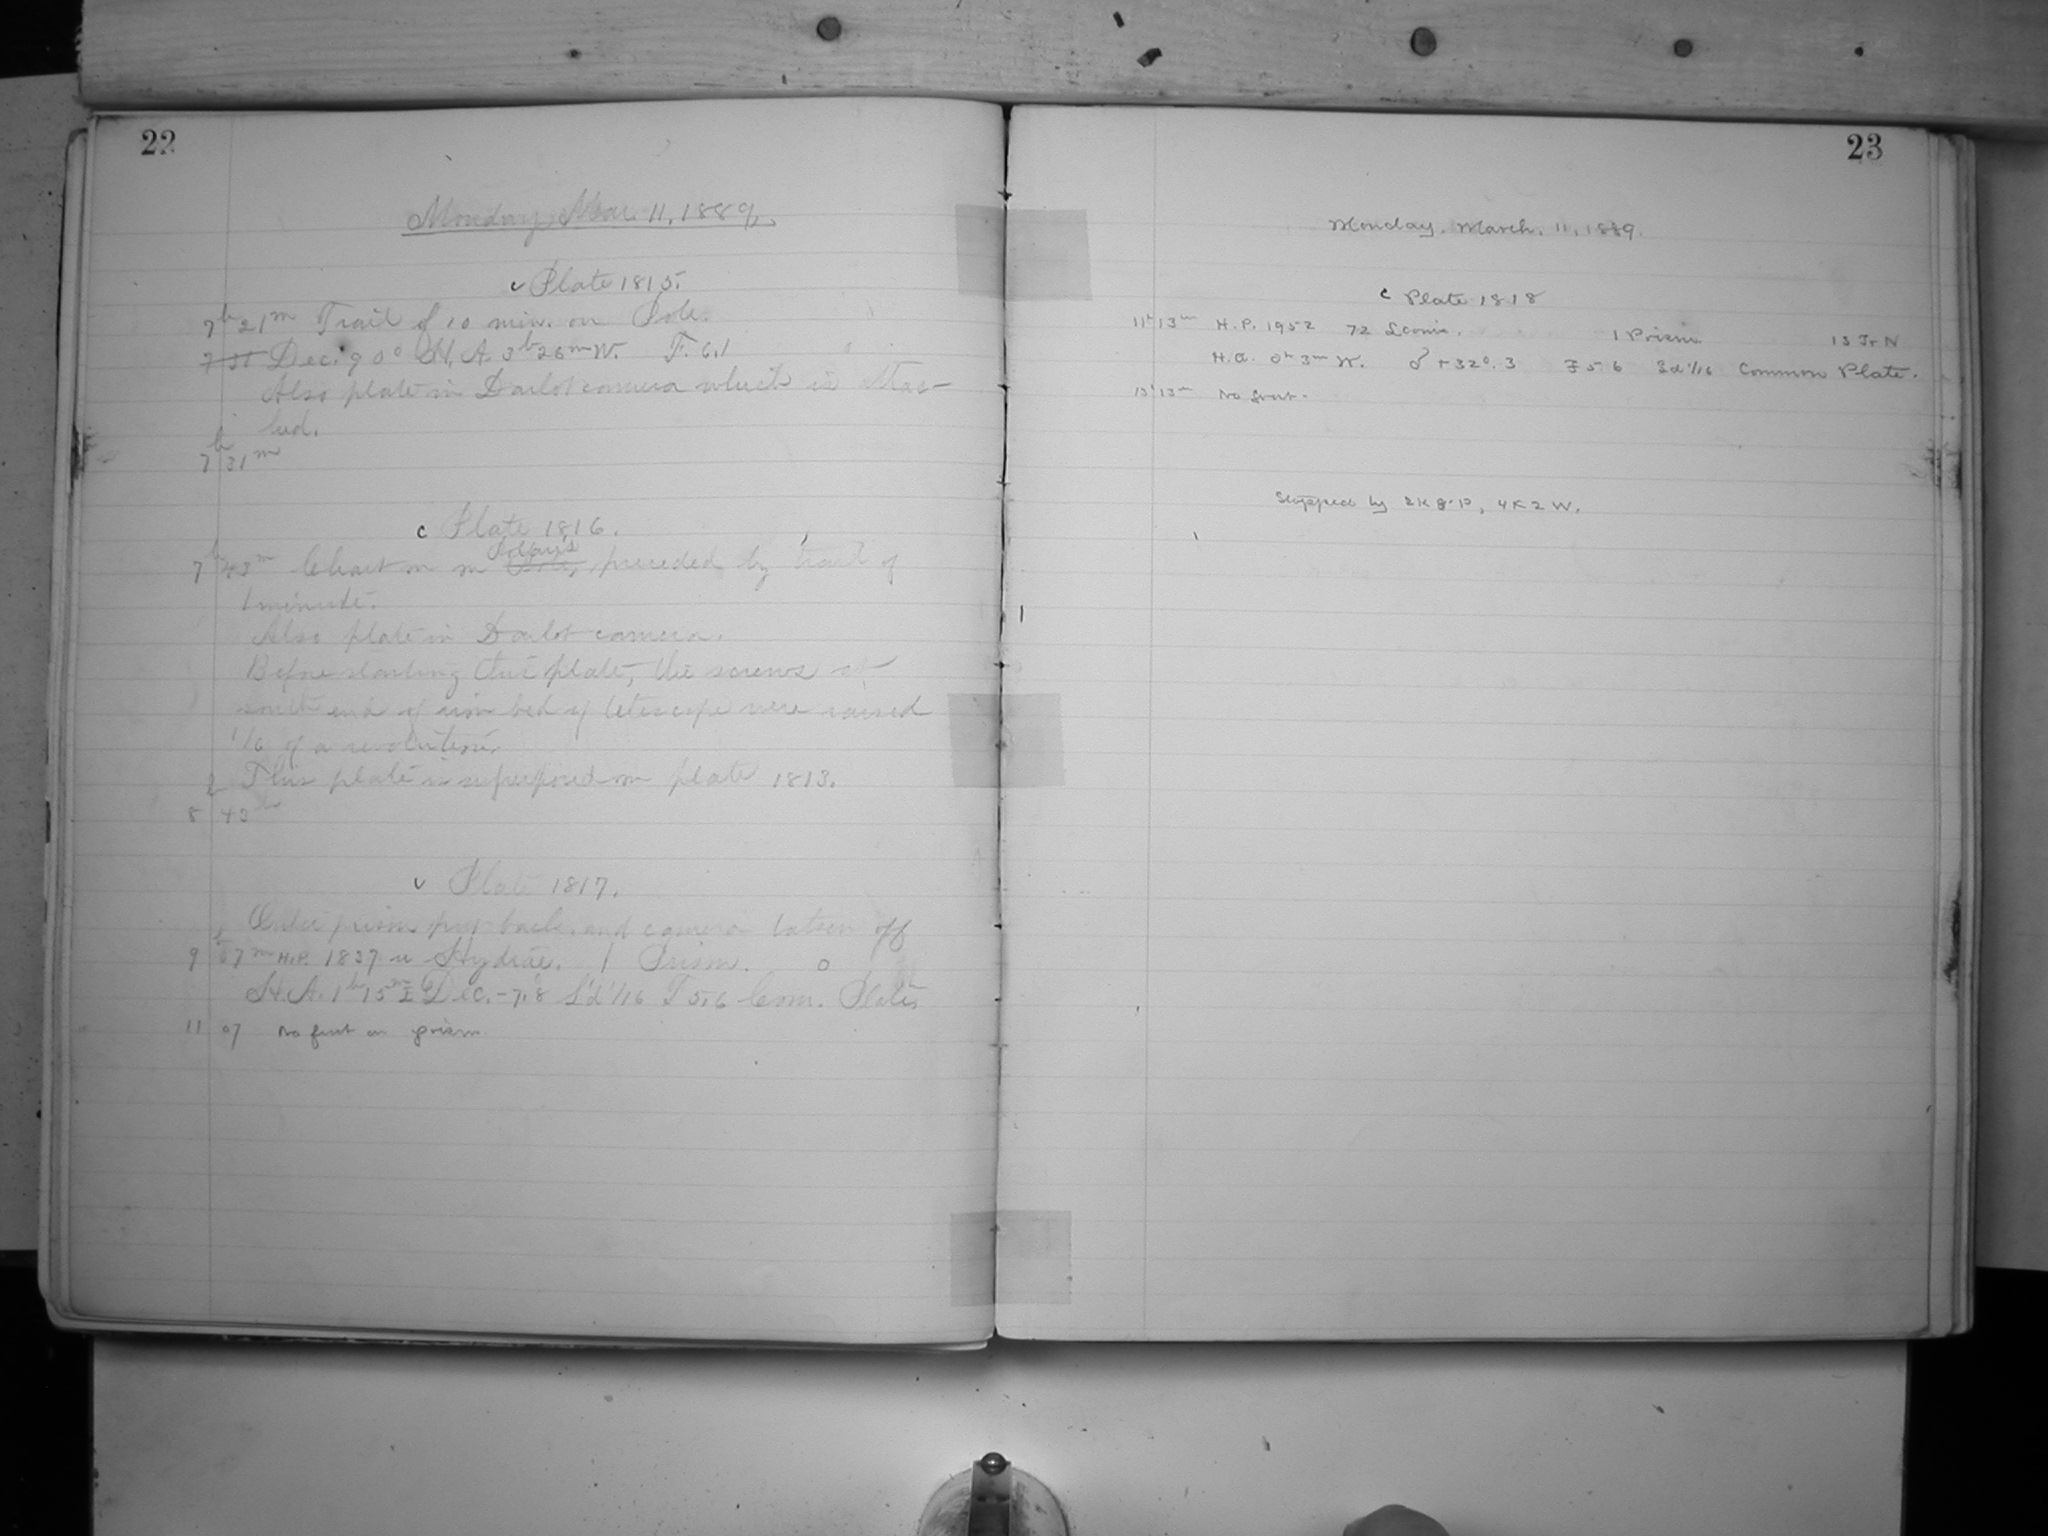 22
Monday, Mar. 11, 1889.
c Plate 1815.
7h 21m Trail of 10 min. on Pole.
7 31 Dec. 90° H.A. 3h 26m W. F. 6.1
Also plate in Darlot camera which is attac-
hed.
7h 31m
c Plate 1816.
Polaris
7h 43m Chart on Pole, preceded by trail of
1 minute.
Also plate in Darlot camera.
Before starting this plate, the screws at
south end of iron bed of telescope were raised
1/6 of a revolution.
This plate is superposed on plate 1813.
8h 43m
c Plate 1817.
Outer prism put back, and camera taken off
9h 07m H.P. 1837 u Hydrae. 1 Prism. 0
H.A. 1h 15m E Dec. -7.°8 S'd 1/16 F 5.6 Com. Plate
11 07 No frost on prism.
23
Monday. March. 11, 1889.
c Plate 1818
11h 13m H.P. 1952 72 Leonis. 1 Prism 13 Tr N
H.A. 0h 3m W. δ +32°.3 F 5.6 Sd 1/16 Common Plate.
13h 13m No frost.
Stopped by 2K8P, 4K2W.